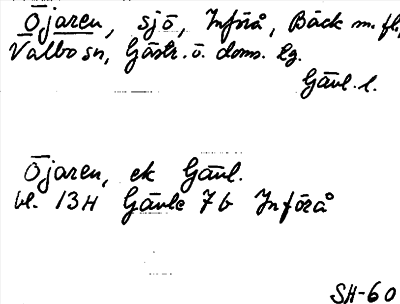 Öjaren, sjö, Införå, Bäck m. fl.,
Valbo sn, Gästr. ö. doms. lg.
Gävl. l.
Öjaren, ek Gävl.
bl. 13H Gävle 7b Införå
SH-60